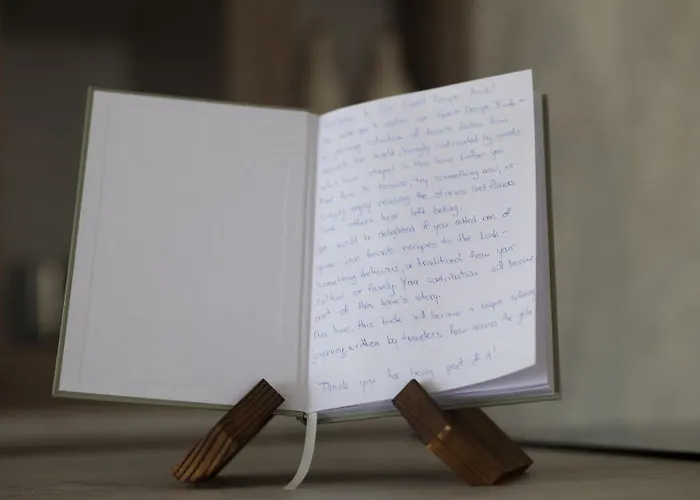 Welcome to the Guest Recipe Book!
We invite you to explore our Guest Recipe Book –
a growing collection of favorite dishes from
around the world, lovingly contributed by guests
who have stayed in this home before you.
Feel free to browse, try something new, or
simply enjoy reading the stories and flavors
that others have left behind.
We would be delighted if you added one of
your own favorite recipes to the book –
something delicious, or traditional from your
culture or family. Your contribution will become
part of this home's story.
Over time, this book will become a unique culinary
journey written by travelers from across the globe.
Thank you for being part of it!